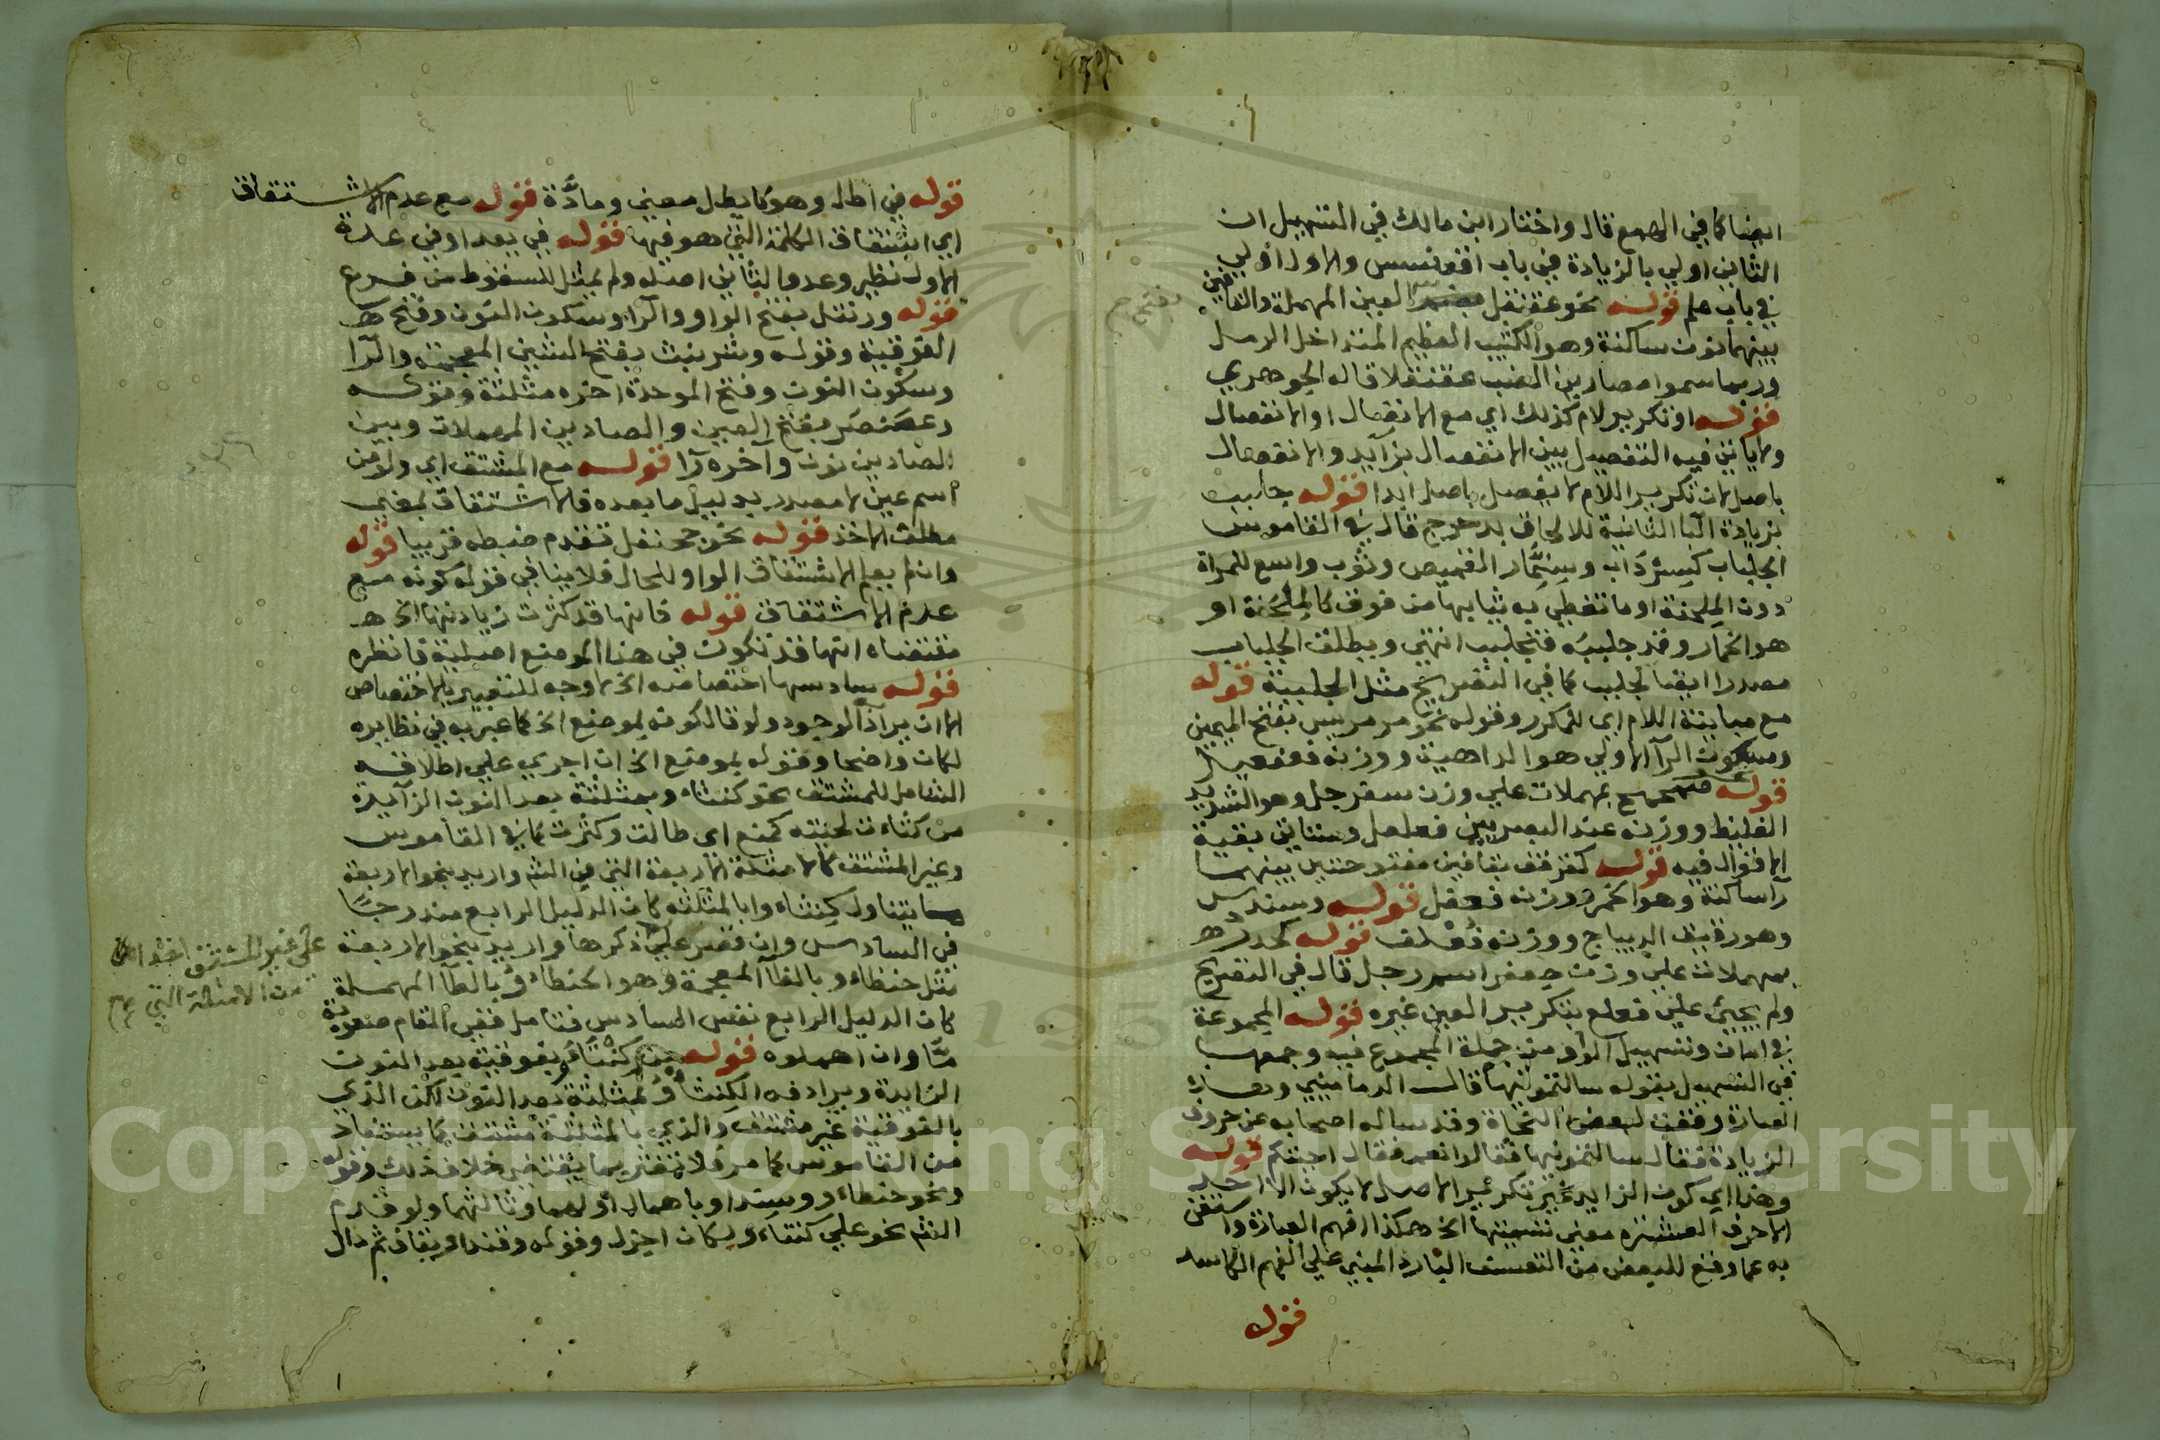 ايضا كما في الهمع قال واختار ابن مالك في التسهيل ان
الثاني اولي بالزيادة في باب اقعنسس والاول اولي
في باب علم قوله نحو عقنقل بفتح العين المهملة والقافين
بينهما نون ساكنة وهو الكثيب العظيم المتداخل الرمل
وربما سموا مصارين الضب عقنقلا قاله الجوهري
قوله او تكرير لام كذلك اي مع الاتصال او الانفصال
ولا ياتي فيه التفصيل بين الانفصال بزآيد والانفصال
باصل لان تكرير اللام لا يفصل باصل ابدا قوله جلبب
بزيادة البا الثانية للالحاق بدحرج قال في القاموس
الجلباب كسرداب وسنمار القميص وثوب واسع للمراة
دون الملحفة او ما تغطي به ثيابها من فوق كالملحفة او
هو الخمار وقد جلببه فتجلبب انتهي ويطلق الجلباب
مصدرا ايضا لجلبب كما في التصريح مثل الجلببة قوله
مع مباينة اللام اي للمكرر وقوله نحو مرمريس بفتح الميمين
وسكون الرآ الاولي هو الداهية ووزنه فعفعيل
قوله صمحمح بمهملات علي وزن سفرجل وهو الشديد
الغليظ ووزنه عند البصريين فعلعل وستاتي بقية
الاقوال فيه قوله كقرقف بقافين مفتوحتين بينهما
رآ ساكنة وهو الخمر ووزنه فعفل قوله وسندس
وهو رقيق الديباج ووزنه فعلف قوله كحدرد
بمهملات علي وزن جعفر اسم رجل قال في التصريح
ولم يجيئ علي فعلع بتكرير العين غيره قوله المجموعة
في امان وتسهيل الواو من جملة المجموع فيه وجمعها
في التسهيل بقوله سالتمونيها قال الدماميني وهذه
العبارة وقعت لبعض النحاة وقد ساله اصحابه عن حروف
الزيادة فقال سالتمونيها فقالوا نعم فقال اجبتكم قوله
وهذا اي كون الزايد غير تكرير الاصل لا يكون الا احد
الاحرف العشرة معني تسميتها الخ هكذا افهم العبارة واستغن
به عما وقع للبعض من التعسف البارد المبني علي الفهم الكاسد
قوله
قوله في اطال وهو كابطل معني ومادة قوله مع عدم الاشتقاق
اي اشتقاق الكلمة التي هو فيها قوله في يعد او في عدة
الاول نظير وعد والثاني اصله ولم يمثل للسقوط من فرع
قوله ورنتل بفتح الواو والرآ وسكون النون وفتح
الفوقية وقوله وشرنبث بفتح الشين المعجمة والرا
وسكون النون وفتح الموحدة اخره مثلثة وقوله
وعصنصر بفتح العين والصادين المهملات وبين
الصادين نون وآخره رآ قوله مع المشتق اي ولو من
اسم عين لا مصدر بدليل ما بعده فالاشتقاق بمعني
مطلق الاخذ قوله نحو جحنفل تقدم ضبطه قريبا قوله
وان لم يعلم الاشتقاق الواو للحال فلا ينافي قوله كونه مع
عدم الاشتقاق قوله فانها قد كثرت زيادتها الخ
مقتضاه انها قد تكون في هذا الموضع اصلية فانظره
قوله سادسها اختصاصه الخ لا وجه للتعبير بالاختصاص
الا ان يراد الوجود ولو قال كونه بموضع الخ كما عبر به في نظايره
لكان واضحا وقوله بموضع الخ ان اجري علي اطلاقه
الشامل للمشتق نحو كنثاء وبمثلثة بعد النون الزآيدة
من كثات لحيته كمنع اي طالت وكثرت كما في القاموس
وغير المشتق كالامثلة الاربعة التي في الشم واريد بنحو الاربعة
ما يتناول كنثاء وابالمثلثة كان الدليل الرابع مندرجا
في السادس وان قصر علي ذكرها واريد بنحو الاربعة
مثل حنظاء وبالظآ المعجمة وهو الحنطاء وبالطآ المهملة
كان الدليل الرابع نفس السادس فتامل ففي المقام صعوبة
ما وان اهملوه قوله كنتاو بفوقية بعد النون
الزايدة ويرادفه الكنثاو بمثلثة بعد النون لكن الذي
بالفوقية غير مشتق والذي بالمثلثة مشتق كما يستفاد
من القاموس كما مر فلا تغتر بما يقتضي خلاف ذلك وقوله
ونحو حنطاء و وسنداو باهمال اولهما وثالثهما ولو قدم
الشم نحو علي كنتاء و لكان اخزل وقوله وقنداو بقاف ثم دال
علي غير المشتق اخذا
من الامثلة التي